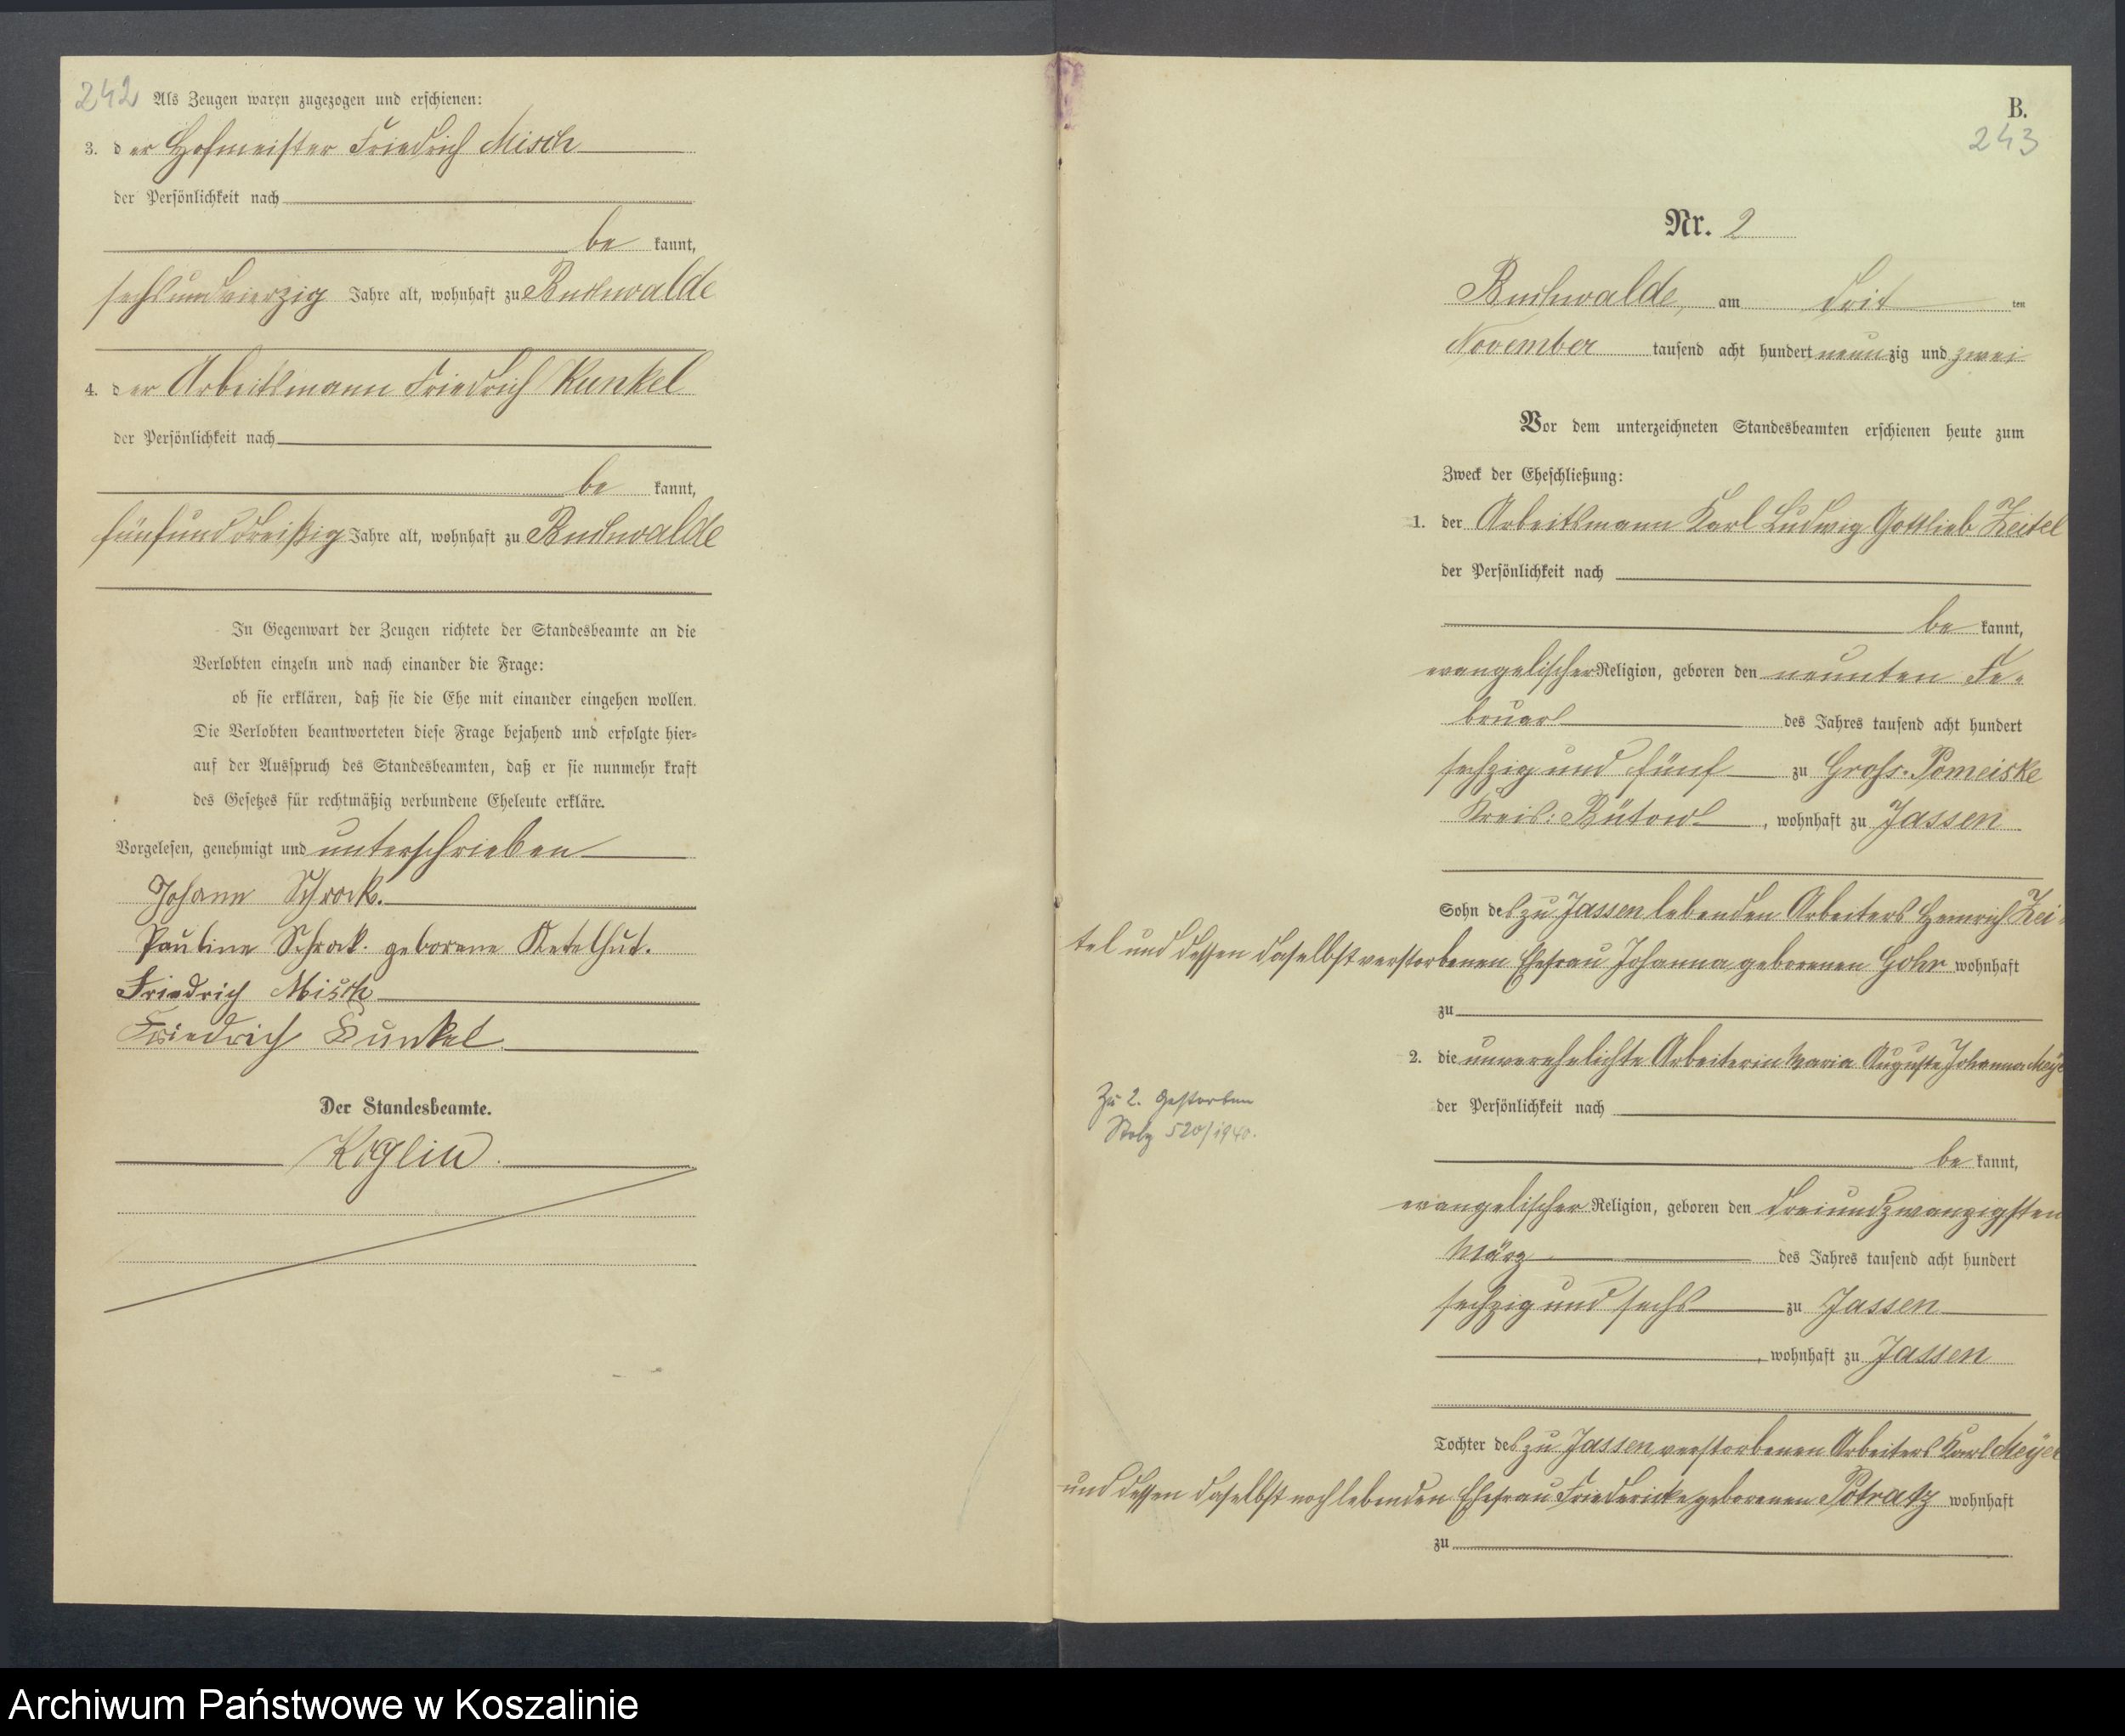 242 Als Zeugen waren zugezogen und erschienen:
3. der Hofmeister Friedrich Misch
der Persönlichkeit nach
be kannt,
sechsundvierzig Jahre alt, wohnhaft zu Buchwalde
4. der Arbeitsmann Friedrich Kunkel
der Persönlichkeit nach
be kannt,
fünfunddreißig Jahre alt, wohnhaft zu Buchwalde
In Gegenwart der Zeugen richtete der Standesbeamte an die
Verlobten einzeln und nach einander die Frage:
ob sie erklären, daß sie die Ehe mit einander eingehen wollen.
Die Verlobten beantworteten diese Frage bejahend und erfolgte hier-
auf der Ausspruch des Standesbeamten, daß er sie nunmehr kraft
des Gesetzes für rechtmäßig verbundene Eheleute erkläre.
Vorgelesen, genehmigt und unterschrieben
Johann Schrock.
Pauline Schrock. geborene Ketelhut.
Friedrich Misch
Friedrich Kunkel
Der Standesbeamte.
Koglin.
B.
243
Nr. 2
Buchwalde, am drit ten
November tausend acht hundert neunzig und zwei
Vor dem unterzeichneten Standesbeamten erschienen heute zum
Zweck der Eheschließung:
1. der Arbeitsmann Karl Ludwig Gottlieb Zeitel
der Persönlichkeit nach
be kannt,
evangelischer Religion, geboren den neunten Fe-
bruar des Jahres tausend acht hundert
sechzig und fünf zu Gross-Pomeiske
Kreis: Bütow, wohnhaft zu Jassen
Sohn des zu Jassen lebenden Arbeiters Heinrich Zei-
tel und dessen daselbst verstorbenen Ehefrau Johanna geborenen Gohr wohnhaft
zu
2. die unverehelichte Arbeiterin Maria Auguste Johanna Meyer
der Persönlichkeit nach
Zu 2. Gestorben
Stolp 520/1940.
be kannt,
evangelischer Religion, geboren den dreiundzwanzigsten
März des Jahres tausend acht hundert
sechzig und sechs zu Jassen
, wohnhaft zu Jassen
Tochter des zu Jassen verstorbenen Arbeiters Karl Meyer
und dessen daselbst noch lebenden Ehefrau Friedericke geborenen Potratz wohnhaft
zu
Archiwum Państwowe w Koszalinie